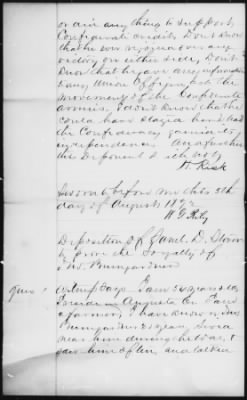 or aid any thing to support
Confederate credits Don't know
that he ever rejoiced over any
victory on either side, Don't
know that he gave any information
to any Union Officer, of the
movements of the Confederate
armies. I don't know that he
could have staid and had
the Confederacy gained its
independence. And further
this Deponent saith not
H. Risk
Sworn to before me this 5th
day of August 1872
W G Riley
Deposition of Saml. D.
to prove the Loyalty of
Jno. Bumgardner
Ques 1
Witness Says I am 54 years old
I reside in Augusta Co. I am
a farmer, I have known Jno
Bumgardner 25 years, lived
near him during the war, I
saw him often, and talked